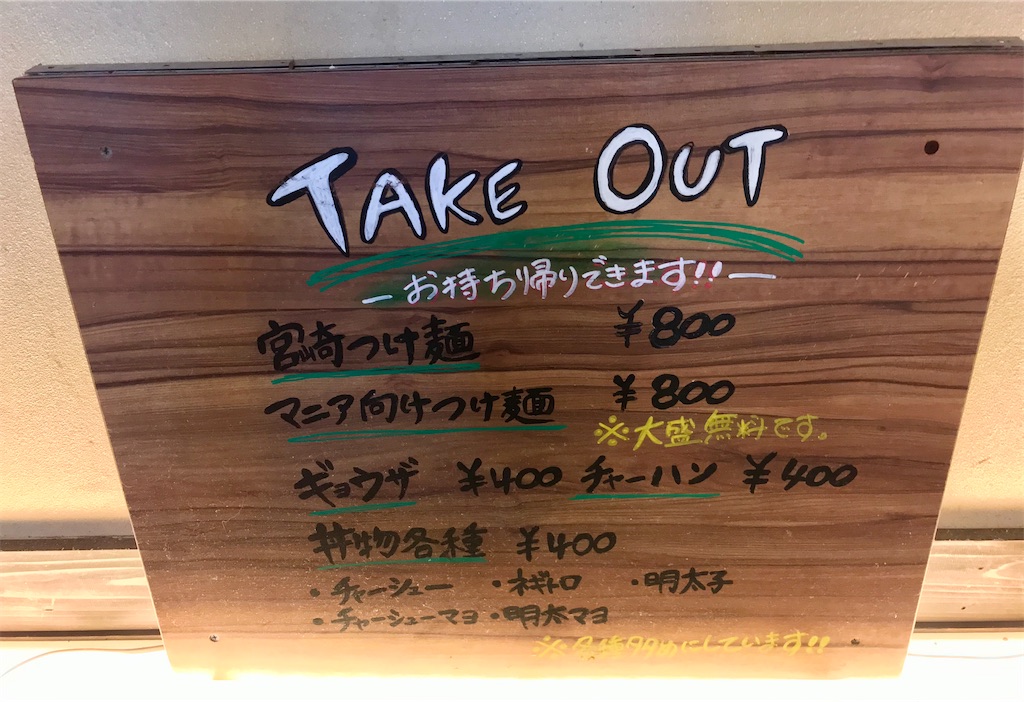 TAKE OUT
ーお持ち帰りできます!!ー
宮崎つけ麺 ¥800
マニア向けつけ麺 ¥800
※大盛無料です。
ギョウザ ¥400 チャーハン ¥400
丼物各種 ¥400
・チャーシュー ・ネギトロ ・明太子
・チャーシューマヨ・明太マヨ
※多めにしています!!